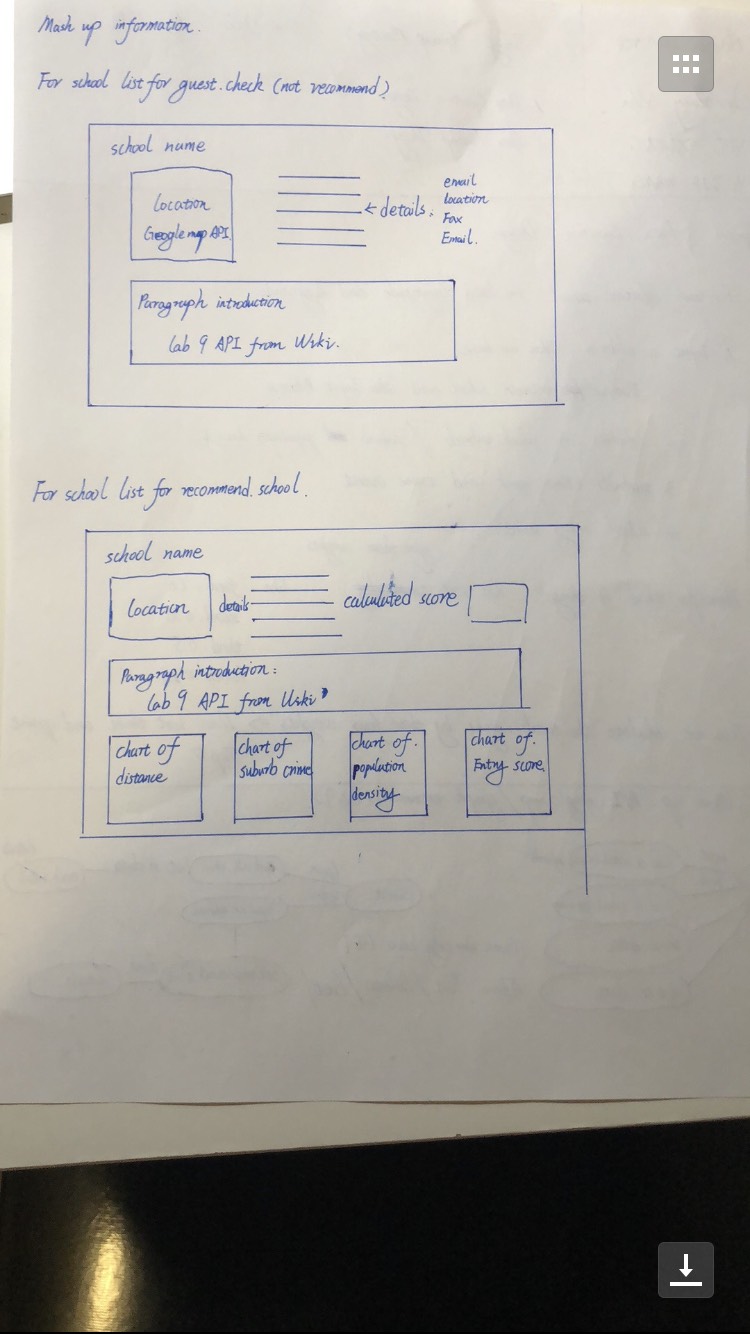 Mash up information.
For school list for guest.check (not recommend)
school name
Location
Google map API.
← details.
email
location
Fax
Email.
Paragraph introduction
lab 9 API from Wiki.
For school list for recommend.school.
school name
Location
details
calculated score
Paragraph introduction:
lab 9 API from Wiki
chart of
distance
chart of
suburb crime
chart of.
population
density
chart of.
Entry score.